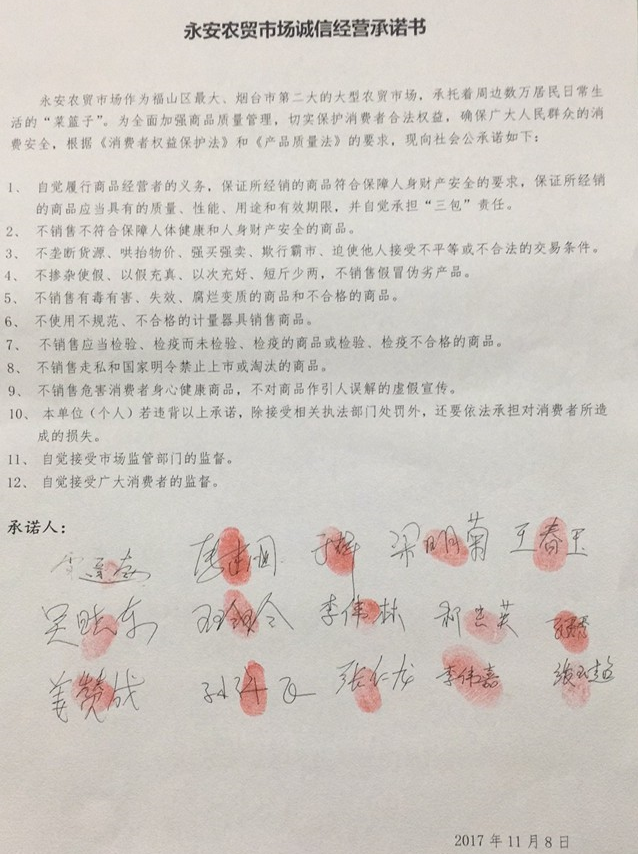 永安农贸市场诚信经营承诺书
永安农贸市场作为福山区最大、烟台市第二大的大型农贸市场，承托着周边数万居民日常生
活的“菜篮子”。为全面加强商品质量管理，切实保护消费者合法权益，确保广大人民群众的消
费安全，根据《消费者权益保护法》和《产品质量法》的要求，现向社会公承诺如下：
1、 自觉履行商品经营者的义务，保证所经销的商品符合保障人身财产安全的要求，保证所经销
的商品应当具有的质量、性能、用途和有效期限，并自觉承担“三包”责任。
2、 不销售不符合保障人体健康和人身财产安全的商品。
3、 不垄断货源、哄抬物价、强买强卖、欺行霸市、迫使他人接受不平等或不合法的交易条件。
4、 不掺杂使假、以假充真、以次充好、短斤少两，不销售假冒伪劣产品。
5、 不销售有毒有害、失效、腐烂变质的商品和不合格的商品。
6、 不使用不规范、不合格的计量器具销售商品。
7、 不销售应当检验、检疫而未检验、检疫的商品或检验、检疫不合格的商品。
8、 不销售走私和国家明令禁止上市或淘汰的商品。
9、 不销售危害消费者身心健康商品，不对商品作引人误解的虚假宣传。
10、 本单位（个人）若违背以上承诺，除接受相关执法部门处罚外，还要依法承担对消费者所造
成的损失。
11、 自觉接受市场监管部门的监督。
12、 自觉接受广大消费者的监督。
承诺人：
梁明菊 王春玉
李伟林
姜赞成 张仁龙 李伟嘉
2017 年 11 月 8 日